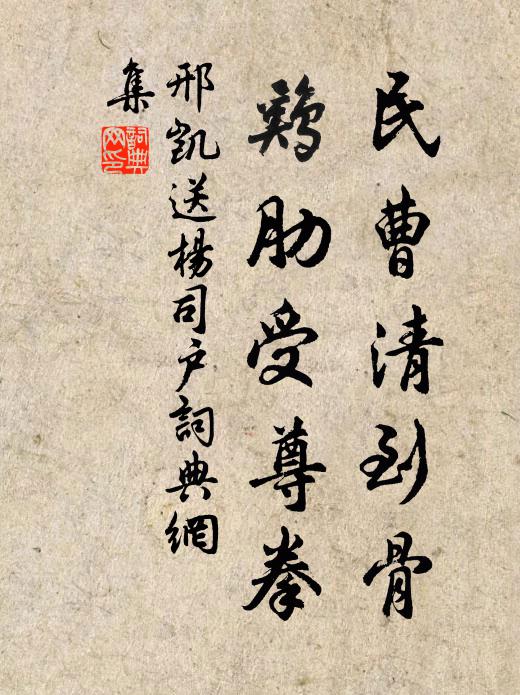 民曹清到骨
鷄肋受尊拳
邢凱送楊司户詞典網
集
詞典網印